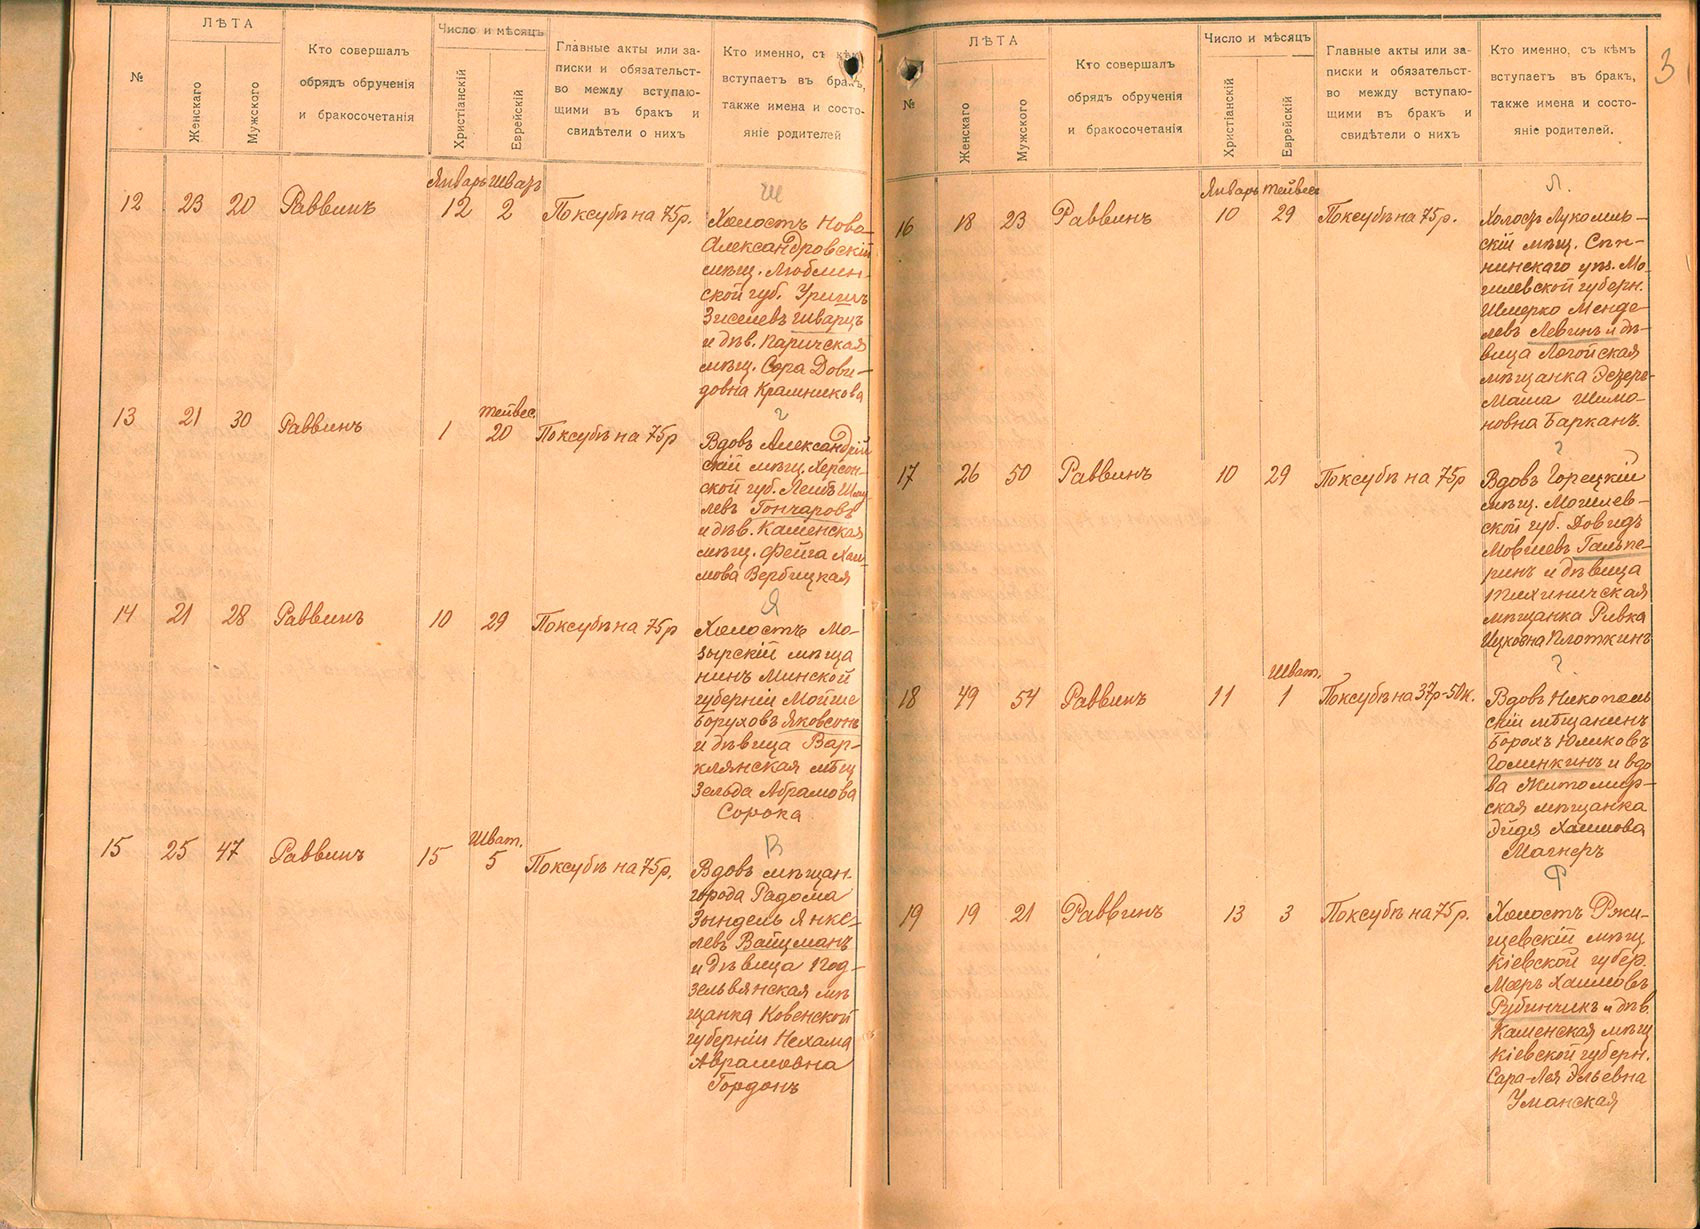 ЛѢТА
Число и мѣсяцъ
№
Женскаго
Мужского
Кто совершалъ
обрядъ обрученія
и бракосочетанія
Христіанскій
Еврейскій
Главные акты или за-
писки и обязательст-
во между вступаю-
щими въ бракъ и
свидѣтели о нихъ
Кто именно, съ кѣмъ
вступаетъ въ бракъ,
также имена и состо-
яніе родителей
Январь Шватъ
Ш
12 23 20 Раввинъ 12 2 По ксубѣ на 75 р.
Холостъ Ново-
Александровскій
мѣщ. Люблин-
ской губ. Уригилъ
Зиселевъ Шварцъ
и дѣв. Паричская
мѣщ. Сора Дови-
довна Крамникова
Тейвес.
Г
13 21 30 Раввинъ 1 20 По ксубѣ на 75 р
Вдовъ Александрій
скій мѣщ. Херсон-
ской губ. Лейбъ Шму-
левъ Гончаровъ
и дѣв. Каменская
мѣщ. Фейга Хаи-
мова Вербицкая
Я
14 21 28 Раввинъ 10 29 По ксубѣ на 75 р
Холостъ Мо-
зырскій мѣща
нинъ Минской
губерніи Мойше
Боруховъ Яковсонъ
и дѣвица Вар-
клянская мѣщ
Зельда Абрамова
Сорока
Шват.
В
15 25 47 Раввинъ 15 5 По ксубѣ на 75 р.
Вдовъ мѣщан.
города Радома
Зындель Янке-
левъ Вайцманъ
и дѣвица Под-
зельвянская мѣ
щанка Ковенской
губерніи Нехама
Аврамовна
Гордонъ
3
ЛѢТА
Число и мѣсяцъ
№
Женскаго
Мужского
Кто совершалъ
обрядъ обрученія
и бракосочетанія
Христіанскій
Еврейскій
Главные акты или за-
писки и обязательст-
во между вступаю-
щими въ бракъ и
свидѣтели о нихъ
Кто именно, съ кѣмъ
вступаетъ въ бракъ,
также имена и состо-
яніе родителей.
Январь Тейвес
Л.
16 18 23 Раввинъ 10 29 По ксубѣ на 75 р.
Холостъ Лукомль-
скій мѣщ. Сѣн-
нинскаго уѣз. Мо-
гилевской губерн.
Шмерко Менде-
левъ Левинъ и дѣ-
вица Логойская
мѣщанка
Маша Шимо-
новна Барканъ.
Г
17 26 50 Раввинъ 10 29 По ксубѣ на 75 р
Вдовъ Горецкій
мѣщ. Могилев-
ской губ. Довидъ
Мовшевъ Гальпе-
ринъ и дѣвица
Тихиничская
мѣщанка Ривка
Ицковна Плоткинъ
Шват.
Г
18 49 54 Раввинъ 11 1 По ксубѣ на 37 р-50 к.
Вдовъ Никополь
скій мѣщанинъ
Борохъ Юликовъ
Голинкинъ и вдо
ва Житомир-
ская мѣщанка
Эйдя Хаимова
Магнеръ
Р
19 19 21 Раввинъ 13 3 По ксубѣ на 75 р.
Холостъ Ржи-
щевскій мѣщ.
Кіевской губер.
Мееръ Хаимовъ
Рубинчикъ и дѣв.
Каменская мѣщ
Кіевской губерн.
Сара-Лея Эльевна
Уманская